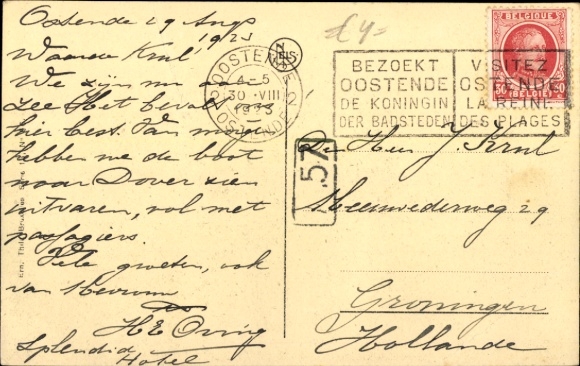 Ostende 29 Augs
1923
Waarde Krul
We zijn nu
zee Het bevalt ons
hier best. Van morgen
hebben we de boot
naar Dover zien
uitvaren, vol met
passagiers.
Vele groeten, ook
van Mevrouw
H E Oving
Splendid
Hotel
£ 4=
OOSTENDE
30 VIII
1923
OSTENDE
BEZOEKT
OOSTENDE
DE KONINGIN
DER BADSTEDEN
VISITEZ
OSTENDE
LA REINE
DES PLAGES
BELGIQUE
BELGIË
.57
Den Heer J. Krul
Meeuwerderweg 29
Groningen
Hollande
Ern. Thill, Bruxelles